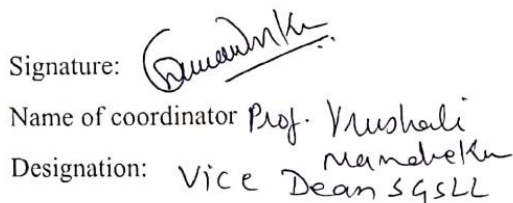 Signature:
Name of coordinator Prof. Vrushali
Mandrekar
Designation: Vice Dean SGSLL